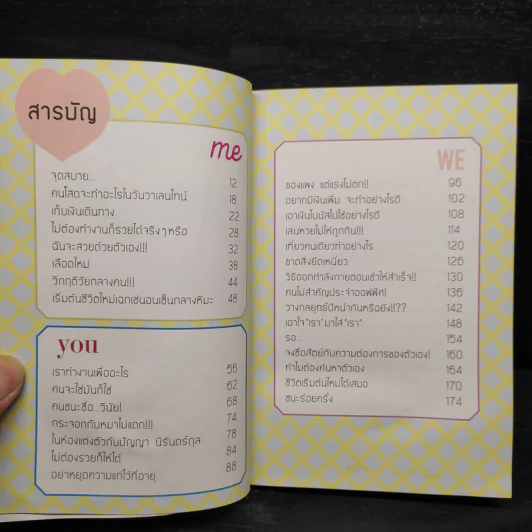 สารบัญ
me
จุดสบาย... 12
คนโสดจะทำอะไรในวันวาเลนไทน์ 18
เก็บเงินเดินทาง 22
ไม่ต้องทำงานก็รวยได้จริงๆหรือ 28
ฉันจะสวยด้วยตัวเอง!!! 32
เลือดใหม่ 38
วิกฤติวัยกลางคน!!! 44
เริ่มต้นชีวิตใหม่เฉกเช่นอนเซ็นกลางหิมะ 48
you
เราทำงานเพื่ออะไร 56
คนจะใช่มันก็ใช่ 62
คนชนะชื่อ..วินัย! 68
กระจอกกับหมาไม่แดก!!! 74
ในห้องแต่งตัวกับปัญญา นิรันดร์กุล 78
ไม่ต้องรวยก็ให้ได้ 84
อย่าหยุดความแก่ไว้ที่อายุ 88
WE
ของแพง แต่แรงไม่ตก!! 96
อยากมีเงินเพิ่ม จะทำอย่างไรดี 102
เอาเงินโบนัสไปใช้อย่างไรดี 108
เล่นหวยไม่ให้ถูกกิน!!! 114
เที่ยวคนเดียวทำอย่างไร 120
ขาดสิ่งยึดเหนี่ยว 126
วิธีออกกำลังกายตอนเช้าให้สำเร็จ!! 130
คนไม่สำคัญประจำออฟฟิศ! 136
วางกลยุทธ์ปีหน้ากันหรือยัง!!?? 142
เอาใจ"เรา"มาใส่"เรา" 148
รอ... 154
จงซื่อสัตย์กับความต้องการของตัวเอง! 160
ทำไมต้องค้นหาตัวเอง 164
ชีวิตเริ่มต้นใหม่ได้เสมอ 170
ชนะร้อยครั้ง 174